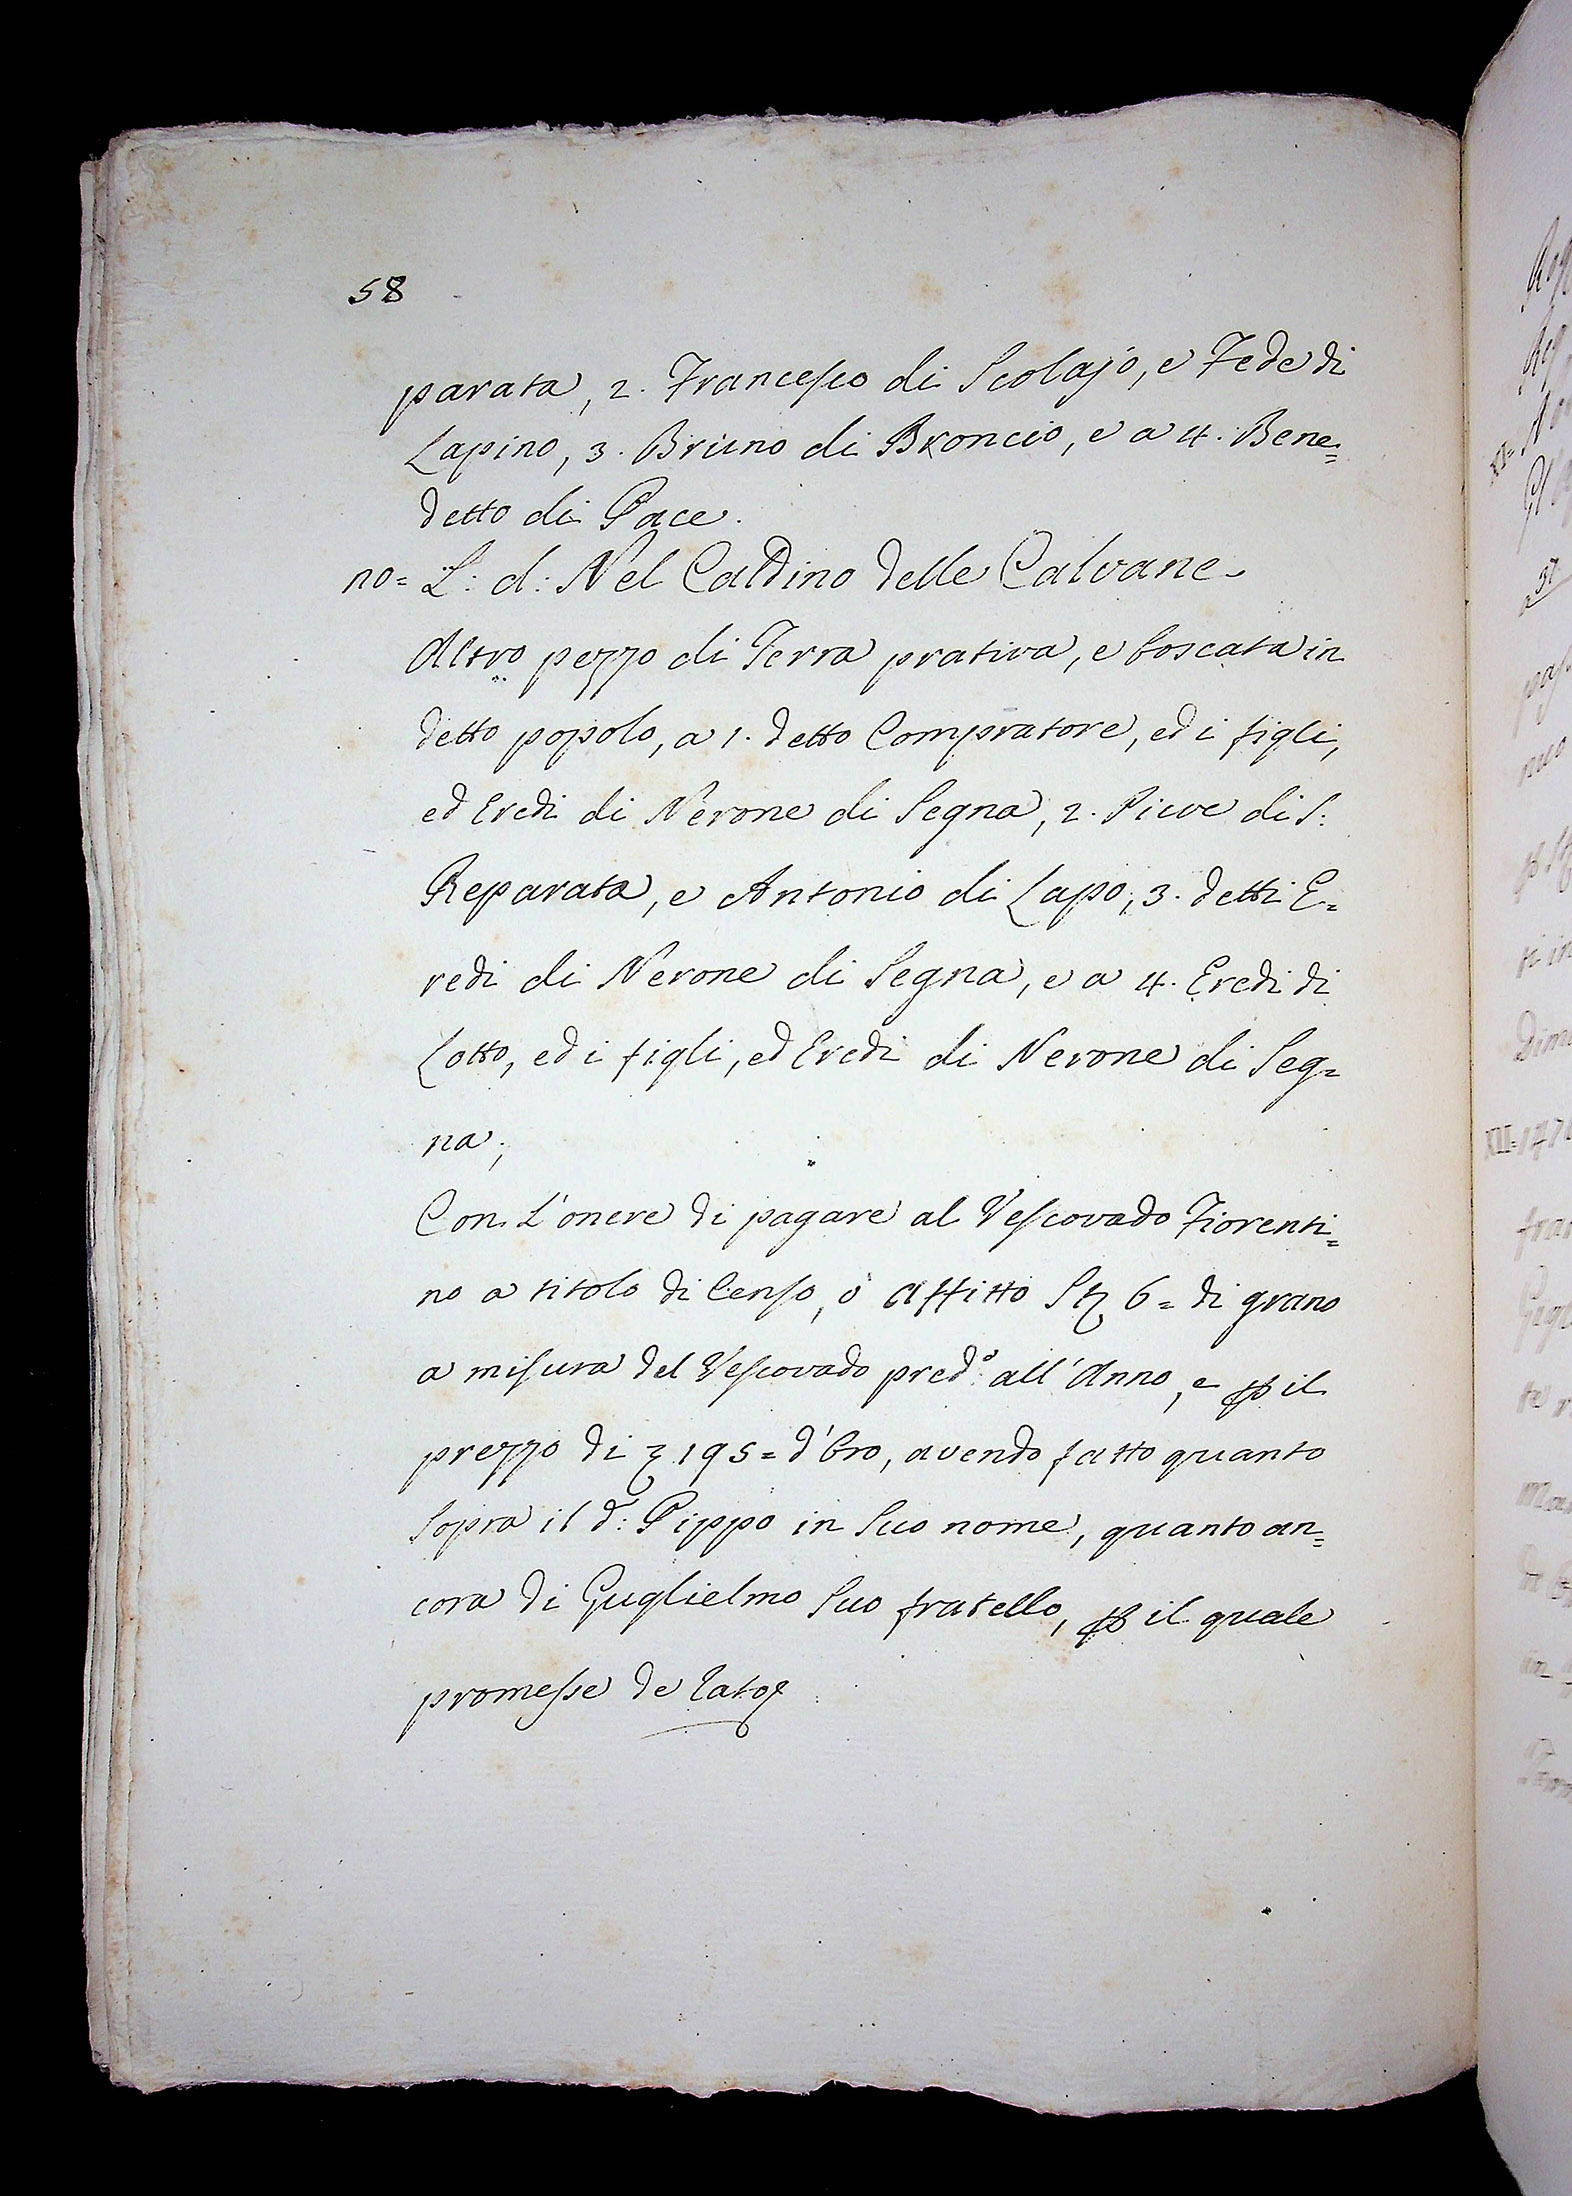 58
parata, 2. Francesco di Scolajo, e Fede di
Lapino, 3. Bruno di Broncio, e a 4. Bene=
detto di Pace.
no= L: d: Nel Caldino delle Calvane
Altro pezzo di Terra prativa, e boscata in
detto popolo, a 1. detto Compratore, ed i figli,
ed Eredi di Nerone di Segna, 2. Pieve di S:
Reparata, e Antonio di Lapo, 3. detti E=
redi di Nerone di Segna, e a 4. Eredi di
Lotto, ed i figli, ed Eredi di Nerone di Seg=
na;
Con L'onere di pagare al Vescovado Fiorenti=
no a titolo di Censo, ò Affitto 6= di grano
a misura del Vescovado pred.º all'Anno, e ꝑ il
prezzo di 195= d'Oro, avendo fatto quanto
sopra il d: Pippo in Suo nome, quanto an=
cora di Guglielmo Suo fratello, ꝑ il quale
promesse de